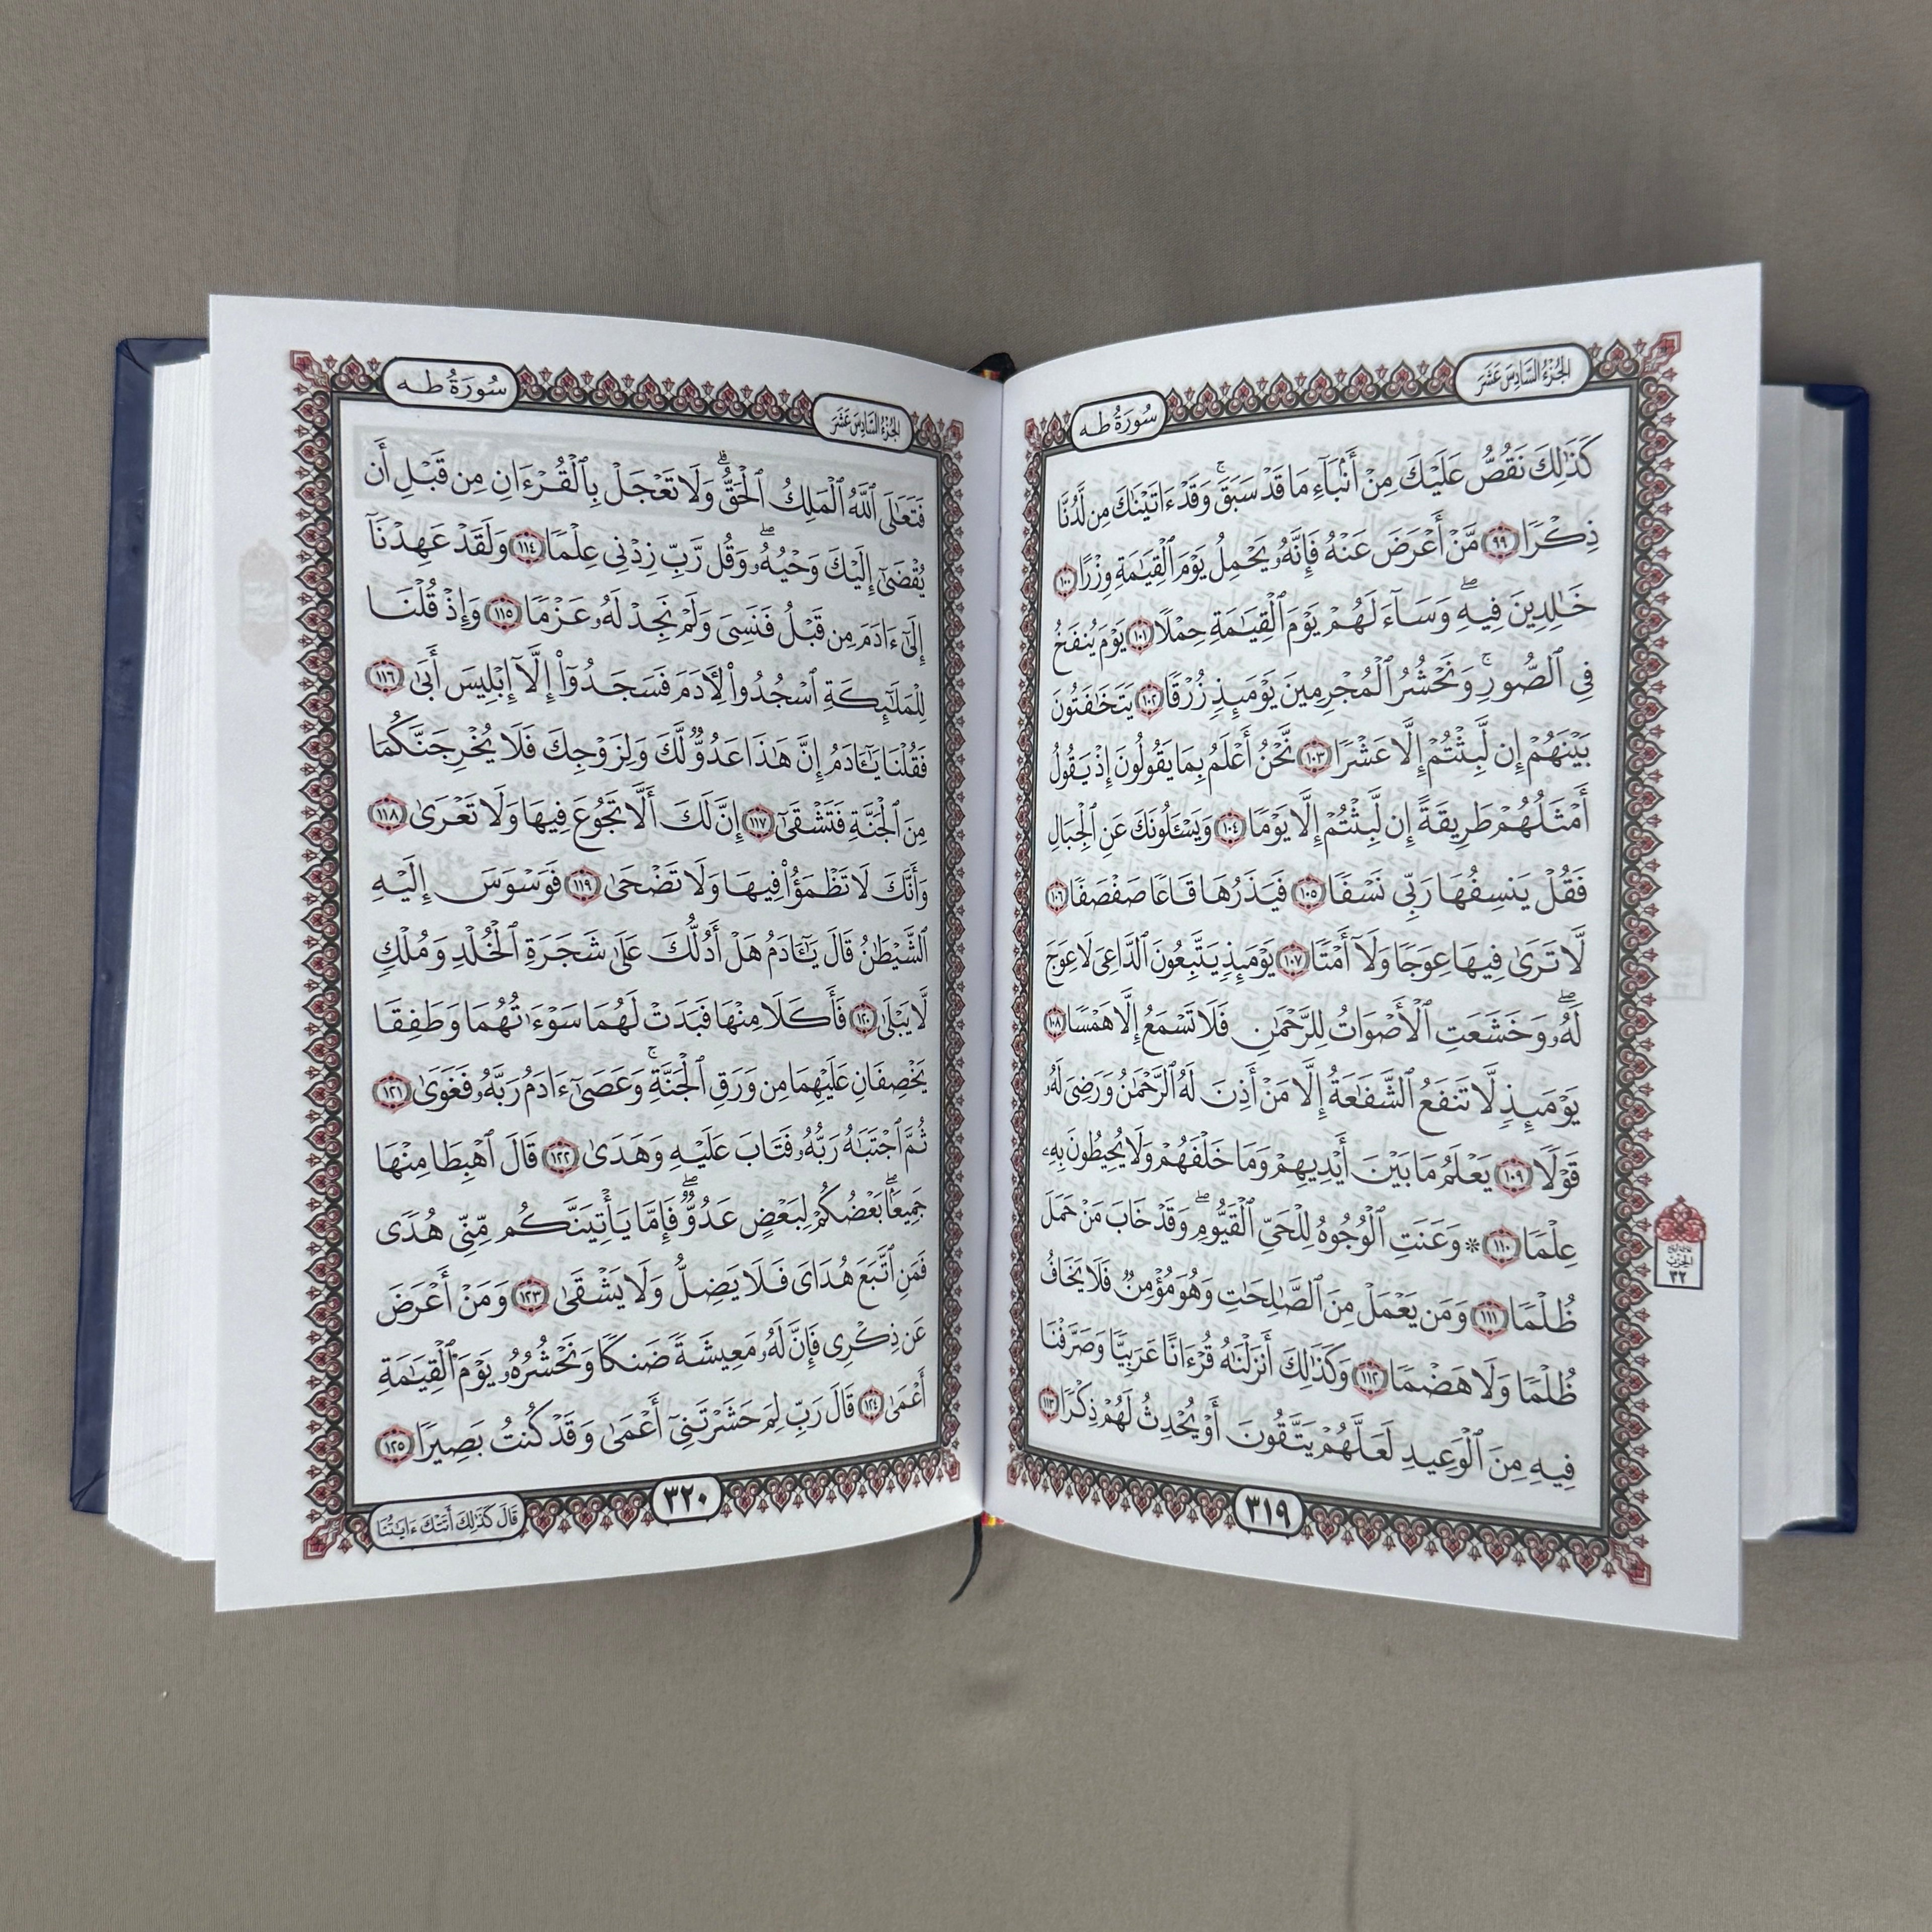 الجزء السادس عشر
سورة طه
كَذَٰلِكَ نَقُصُّ عَلَيْكَ مِنْ أَنۢبَآءِ مَا قَدْ سَبَقَ ۚ وَقَدْ ءَاتَيْنَٰكَ مِن لَّدُنَّا
ذِكْرًا ٩٩ مَّنْ أَعْرَضَ عَنْهُ فَإِنَّهُۥ يَحْمِلُ يَوْمَ ٱلْقِيَٰمَةِ وِزْرًا ١٠٠
خَٰلِدِينَ فِيهِ ۖ وَسَآءَ لَهُمْ يَوْمَ ٱلْقِيَٰمَةِ حِمْلًا ١٠١ يَوْمَ يُنفَخُ
فِى ٱلصُّورِ ۚ وَنَحْشُرُ ٱلْمُجْرِمِينَ يَوْمَئِذٍ زُرْقًا ١٠٢ يَتَخَٰفَتُونَ
بَيْنَهُمْ إِن لَّبِثْتُمْ إِلَّا عَشْرًا ١٠٣ نَّحْنُ أَعْلَمُ بِمَا يَقُولُونَ إِذْ يَقُولُ
أَمْثَلُهُمْ طَرِيقَةً إِن لَّبِثْتُمْ إِلَّا يَوْمًا ١٠٤ وَيَسْـَٔلُونَكَ عَنِ ٱلْجِبَالِ
فَقُلْ يَنسِفُهَا رَبِّى نَسْفًا ١٠٥ فَيَذَرُهَا قَاعًا صَفْصَفًا ١٠٦
لَّا تَرَىٰ فِيهَا عِوَجًا وَلَآ أَمْتًا ١٠٧ يَوْمَئِذٍ يَتَّبِعُونَ ٱلدَّاعِىَ لَا عِوَجَ
لَهُۥ ۖ وَخَشَعَتِ ٱلْأَصْوَاتُ لِلرَّحْمَٰنِ فَلَا تَسْمَعُ إِلَّا هَمْسًا ١٠٨
يَوْمَئِذٍ لَّا تَنفَعُ ٱلشَّفَٰعَةُ إِلَّا مَنْ أَذِنَ لَهُ ٱلرَّحْمَٰنُ وَرَضِىَ لَهُۥ
قَوْلًا ١٠٩ يَعْلَمُ مَا بَيْنَ أَيْدِيهِمْ وَمَا خَلْفَهُمْ وَلَا يُحِيطُونَ بِهِۦ
عِلْمًا ١١٠ * وَعَنَتِ ٱلْوُجُوهُ لِلْحَىِّ ٱلْقَيُّومِ ۖ وَقَدْ خَابَ مَنْ حَمَلَ
ظُلْمًا ١١١ وَمَن يَعْمَلْ مِنَ ٱلصَّٰلِحَٰتِ وَهُوَ مُؤْمِنٌ فَلَا يَخَافُ
ظُلْمًا وَلَا هَضْمًا ١١٢ وَكَذَٰلِكَ أَنزَلْنَٰهُ قُرْءَانًا عَرَبِيًّا وَصَرَّفْنَا
فِيهِ مِنَ ٱلْوَعِيدِ لَعَلَّهُمْ يَتَّقُونَ أَوْ يُحْدِثُ لَهُمْ ذِكْرًا ١١٣
الحزب
٣٢
٣١٩
الجزء السادس عشر
سورة طه
فَتَعَٰلَى ٱللَّهُ ٱلْمَلِكُ ٱلْحَقُّ ۗ وَلَا تَعْجَلْ بِٱلْقُرْءَانِ مِن قَبْلِ أَن
يُقْضَىٰٓ إِلَيْكَ وَحْيُهُۥ ۖ وَقُل رَّبِّ زِدْنِى عِلْمًا ١١٤ وَلَقَدْ عَهِدْنَآ
إِلَىٰٓ ءَادَمَ مِن قَبْلُ فَنَسِىَ وَلَمْ نَجِدْ لَهُۥ عَزْمًا ١١٥ وَإِذْ قُلْنَا
لِلْمَلَٰٓئِكَةِ ٱسْجُدُوا۟ لِـَٔادَمَ فَسَجَدُوٓا۟ إِلَّآ إِبْلِيسَ أَبَىٰ ١١٦
فَقُلْنَا يَٰٓـَٔادَمُ إِنَّ هَٰذَا عَدُوٌّ لَّكَ وَلِزَوْجِكَ فَلَا يُخْرِجَنَّكُمَا
مِنَ ٱلْجَنَّةِ فَتَشْقَىٰٓ ١١٧ إِنَّ لَكَ أَلَّا تَجُوعَ فِيهَا وَلَا تَعْرَىٰ ١١٨
وَأَنَّكَ لَا تَظْمَؤُا۟ فِيهَا وَلَا تَضْحَىٰ ١١٩ فَوَسْوَسَ إِلَيْهِ
ٱلشَّيْطَٰنُ قَالَ يَٰٓـَٔادَمُ هَلْ أَدُلُّكَ عَلَىٰ شَجَرَةِ ٱلْخُلْدِ وَمُلْكٍ
لَّا يَبْلَىٰ ١٢٠ فَأَكَلَا مِنْهَا فَبَدَتْ لَهُمَا سَوْءَٰتُهُمَا وَطَفِقَا
يَخْصِفَانِ عَلَيْهِمَا مِن وَرَقِ ٱلْجَنَّةِ ۚ وَعَصَىٰٓ ءَادَمُ رَبَّهُۥ فَغَوَىٰ ١٢١
ثُمَّ ٱجْتَبَٰهُ رَبُّهُۥ فَتَابَ عَلَيْهِ وَهَدَىٰ ١٢٢ قَالَ ٱهْبِطَا مِنْهَا
جَمِيعًۢا ۖ بَعْضُكُمْ لِبَعْضٍ عَدُوٌّ ۖ فَإِمَّا يَأْتِيَنَّكُم مِّنِّى هُدًى
فَمَنِ ٱتَّبَعَ هُدَاىَ فَلَا يَضِلُّ وَلَا يَشْقَىٰ ١٢٣ وَمَنْ أَعْرَضَ
عَن ذِكْرِى فَإِنَّ لَهُۥ مَعِيشَةً ضَنكًا وَنَحْشُرُهُۥ يَوْمَ ٱلْقِيَٰمَةِ
أَعْمَىٰ ١٢٤ قَالَ رَبِّ لِمَ حَشَرْتَنِىٓ أَعْمَىٰ وَقَدْ كُنتُ بَصِيرًا ١٢٥
٣٢٠
قَالَ كَذَٰلِكَ أَتَتْكَ ءَايَٰتُنَا